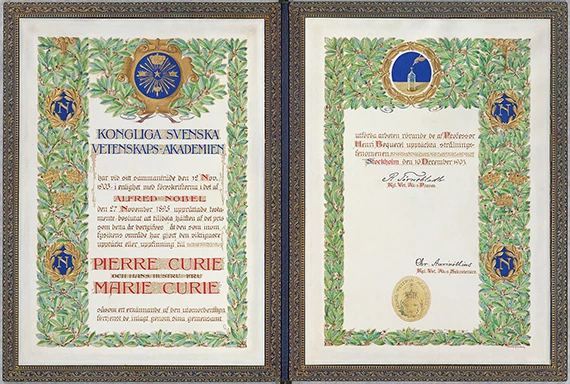 KONGLIGA SVENSKA
VETENSKAPS-AKADEMIEN
har vid sitt sammanträde den 12 Nov.
1903 i enlighet med föreskrifterna i det af
ALFRED NOBEL
den 27 November 1895 upprättade testa-
mente beslutat att tilldela hälften af det pris
som detta år bortgifves åt den som inom
fysikens område har gjort den viktigaste
upptäckt eller uppfinning till
PIERRE CURIE
OCH HANS HUSTRU FRU
MARIE CURIE
såsom ett erkännande af den utomordentliga
förtjenst de inlagt genom sina gemensamt
N
N
utförda arbeten rörande de af Professor
Henri Bequerel upptäckta strålnings-
fenomenen
Stockholm den 10 December 1903.
Kgl. Vet. Ak:s Præses
Chr. Aurivillius
Kgl. Vet. Ak:s Sekreterare
N
N